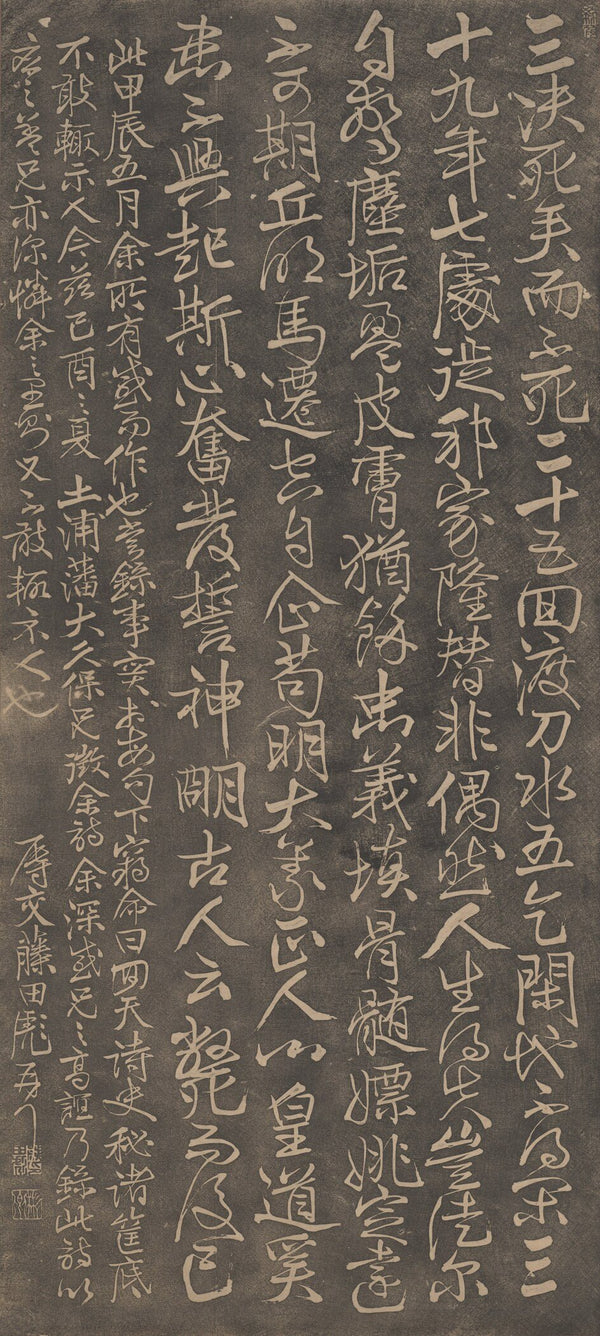 三决死矣而不死二十五回渡刀水五乞閑地不得閑三
十九年七處徙邦家隆替非偶然人生得失豈徒尔
自驚塵垢盈皮膚猶餘忠義填骨髓嫖姚定遠
不可期丘明馬遷空自企苟明大義正人心皇道奚
患不興起斯心奮發誓神明古人云斃而後已
此甲辰五月余所有感而作也嘗錄事實於每句下竊命曰回天詩史秘諸筐底
不敢輙示人今茲己酉之夏 土浦藩大久保兄徵余詩余深感兄之高誼乃錄此詩以
應之蓋兄亦深憐余之 又不敢輙示人也
辱交藤田彪